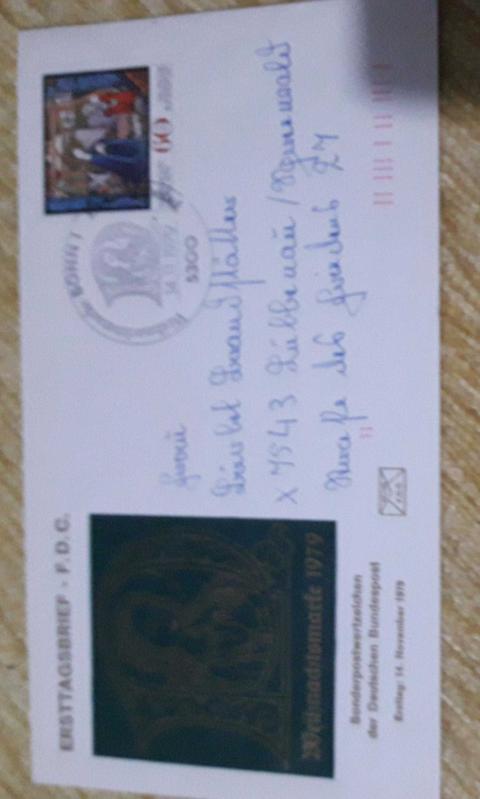 ERSTTAGSBRIEF - F.D.C.
Weihnachtsmarke 1979
Sonderpostwertzeichen
der Deutschen Bundespost
Ersttag: 14. November 1979
60
BONN 1
14.11.1979
5300
X 7543 Lübbenau / Spreewald
Straße des Friedens 27